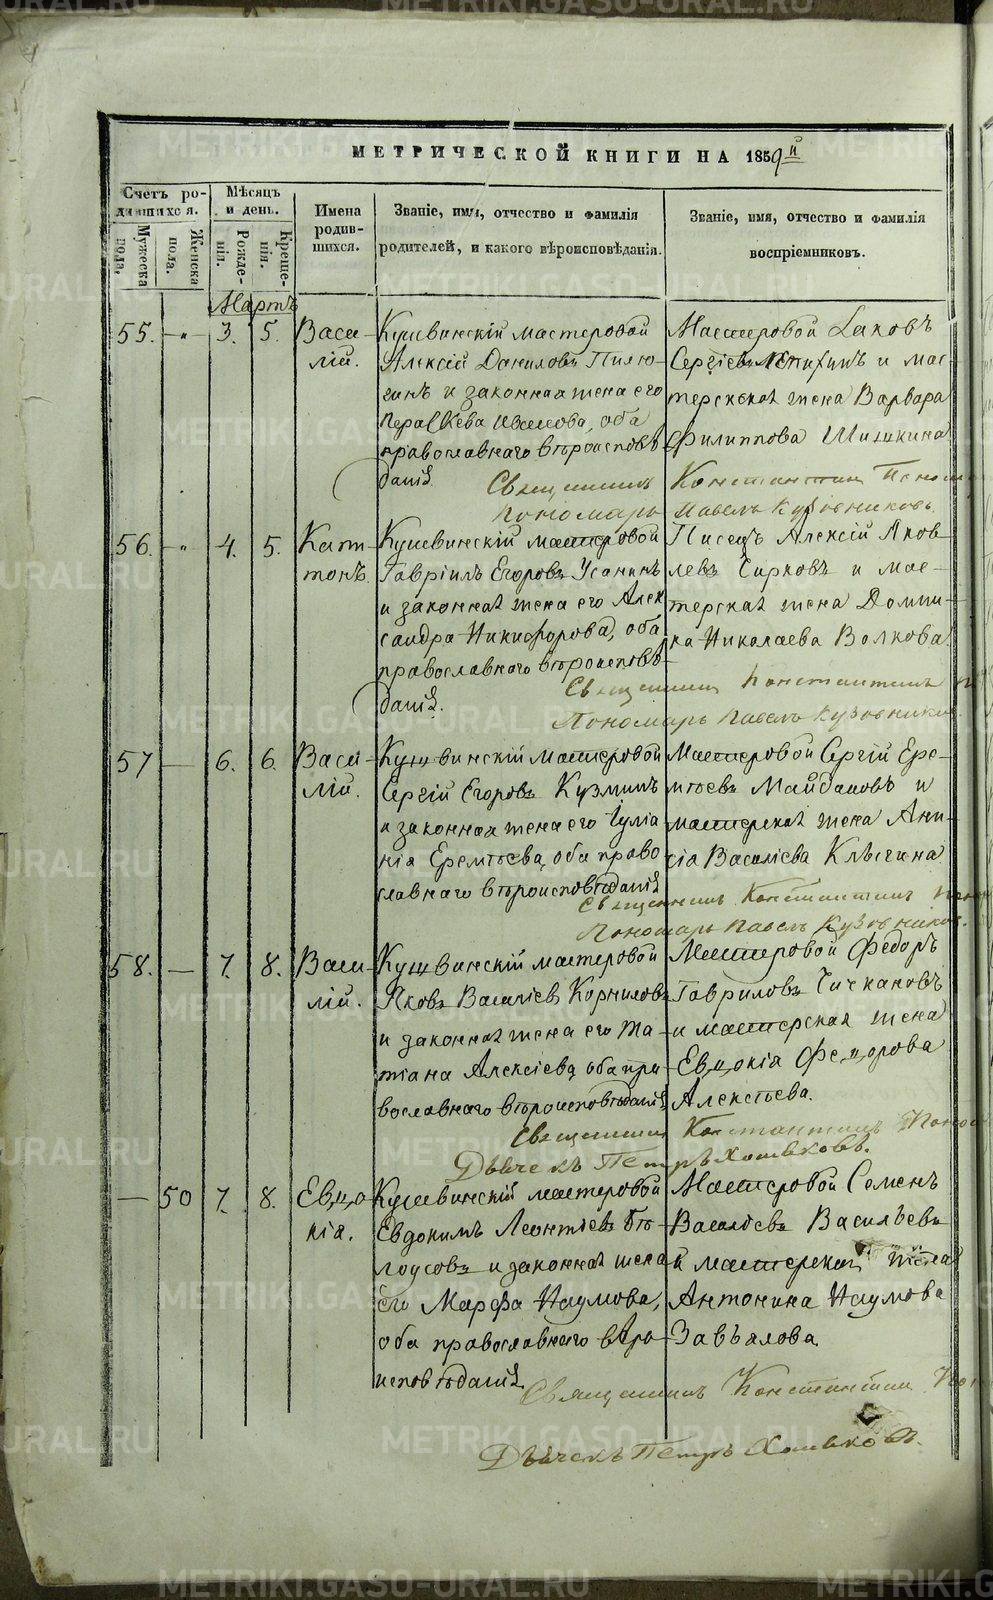 МЕТРИЧЕСКОЙ КНИГИ НА 1859й
Счетъ ро-
дившихся.
Мужеска
пола.
Женска
пола.
Мѣсяцъ
и день.
Рожде-
нія.
Креще-
нія.
Имена
родив-
шихся.
Званіе, имя, отчество и фамилія
родителей, и какого вѣроисповѣданія.
Званіе, имя, отчество и фамилія
воспріемниковъ.
Мартъ
55. - " - 3. 5.
Васи-
лій.
Кушвинскій мастеровой
Алексій Даниловъ Пилю-
гинъ и законная жена его
Параскева Иванова, оба
православнаго вѣроисповѣ-
данія.
Мастеровой Іаковъ
Сергіевъ и мас-
терская жена Варвара
Филиппова Шишкина
Священникъ Константинъ
Пономарь Павелъ Кузовниковъ.
56. - " - 4. 5.
Кап-
тонъ.
Кушвинскій мастеровой
Гавріилъ Егоровъ Усанинъ
и законная жена его Алек
сандра Никифорова, оба
православнаго вѣроисповѣ-
данія.
Писецъ Алексій Яков-
левъ Сирковъ и мас-
терская жена Домни-
ка Николаева Волкова.
Священникъ Константинъ
Пономарь Павелъ Кузовниковъ
57 — 6. 6.
Васи-
лій.
Кушвинскій мастеровой
Сергій Егоровъ Кузминъ
и законная жена его Іулiа
нія Еремѣева, оба право
славнаго вѣроисповѣданія
Мастеровой Сергій Ере-
мѣевъ Майдановъ и
мастерская жена Ани-
сія Василіева Клыгина
Священникъ Константинъ
Пономарь Павелъ Кузовниковъ.
58. — 7. 8.
Васи-
лій.
Кушвинскій мастеровой
Яковъ Василіевъ Корниловъ
и законная жена его Та-
тіана Алексіева, оба пра-
вославнаго вѣроисповѣданія,
Мастеровой Федоръ
Гавриловъ Чичкановъ
и мастерская жена
Евдокія Федорова
Алексѣева.
Священникъ Константинъ
Дьячекъ Петръ Хлыновъ.
— 50 7. 8.
Евдо-
кія.
Кушвинскій мастеровой
Евдокимъ Леонтьевъ Бѣ-
лоусовъ и законная жена
его Марфа Наумова,
оба православнаго вѣро-
исповѣданія
Мастеровой Семенъ
Василіевъ Васильевъ
и мастерская жена
Антонина Наумова
Завьялова
Священникъ Константинъ
Дьячекъ Петръ
METRIKI.GASO-URAL.RU